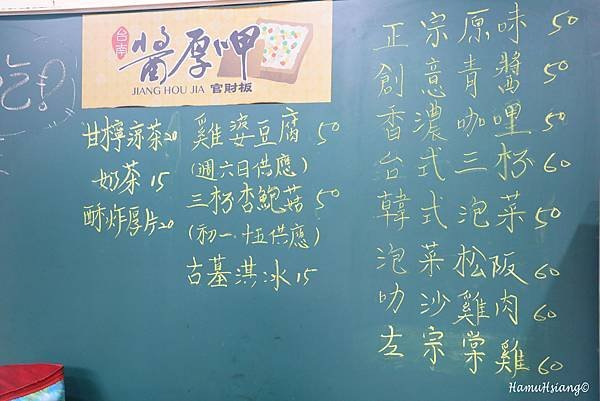 台南
醬厚呷
JIANG HOU JIA 官財板
吃
正宗原味 50
創意青醬 50
香濃咖哩 50
台式三杯 60
韓式泡菜 50
泡菜松阪 60
叻沙雞肉 60
左宗棠雞 60
雞婆豆腐 50
(週六日供應)
三杯杏鮑菇 50
(初一、十五供應)
古墓淇冰 15
甘檸涼茶 20
奶茶 15
酥炸厚片 20
HamuHsiang©